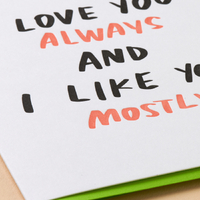 LOVE YOU
ALWAYS
AND
I LIKE YO
MOSTLY